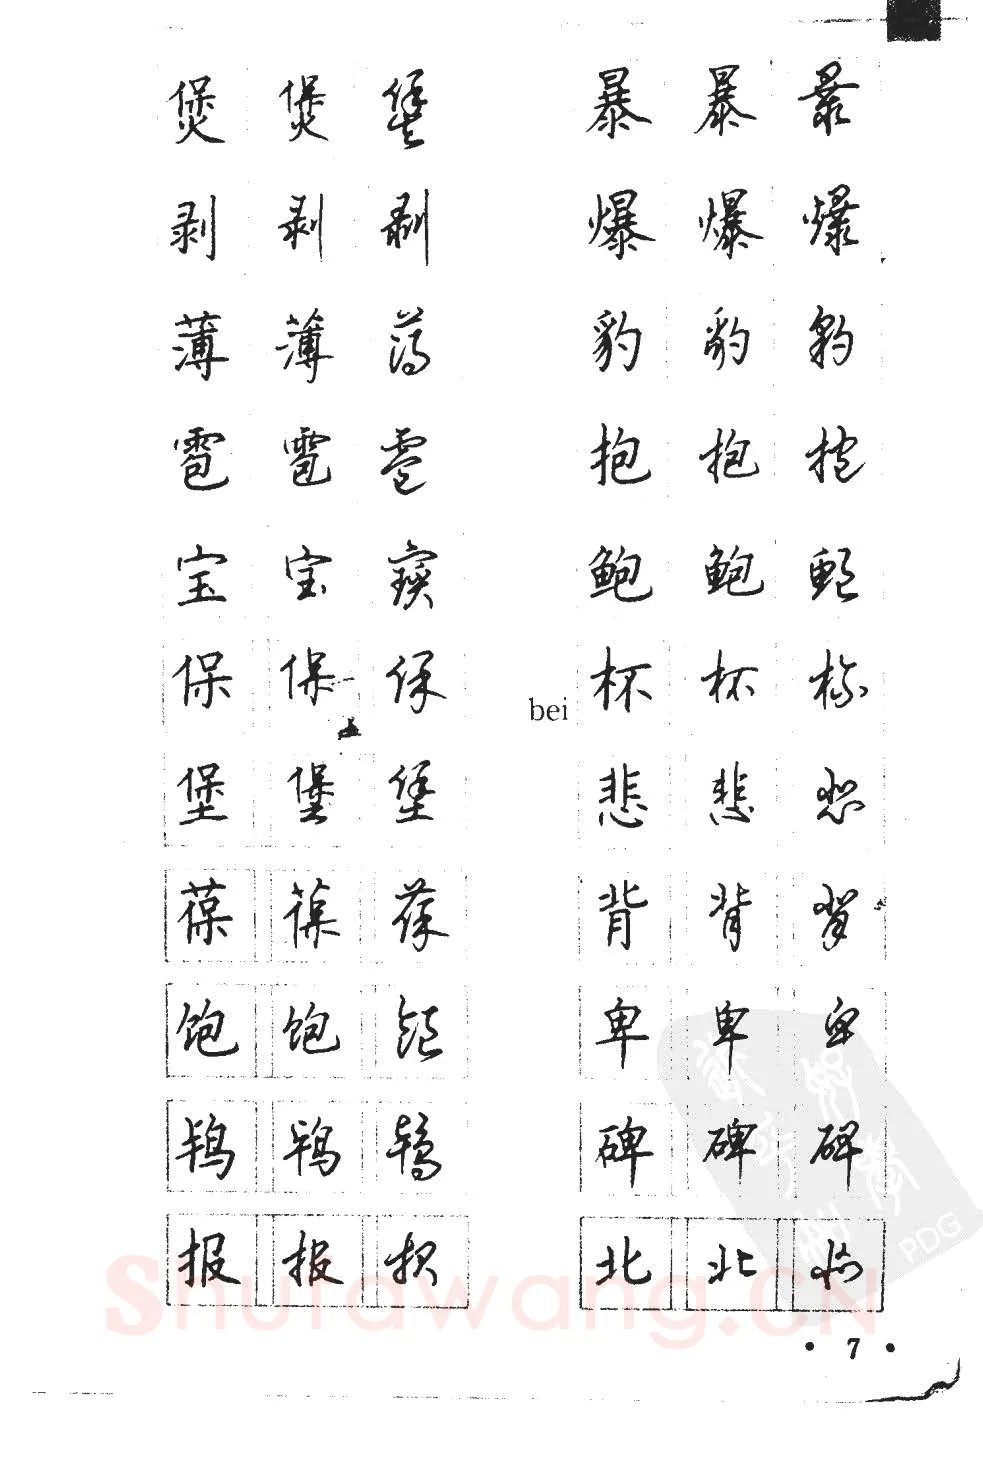 煲 煲 煲
剥 剥 剥
薄 薄 薄
雹 雹 雹
宝 宝 寶
保 保 保
堡 堡 堡
葆 葆 葆
饱 饱 飽
鸨 鸨 鴇
报 报 报
暴 暴 暴
爆 爆 爆
豹 豹 豹
抱 抱 抱
鲍 鲍 鮑
bei 杯 杯 杯
悲 悲 悲
背 背 背
卑 卑 卑
碑 碑 碑
北 北 北
PDG
Shufawang.CN
• 7 •